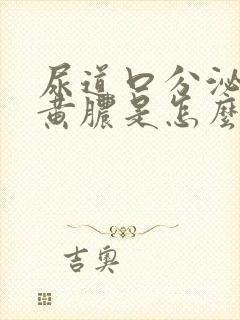 尿道口分泌
黄膿是怎麼
吉奥